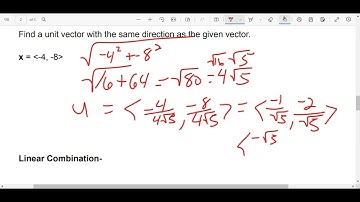 Find a unit vector with the same direction as the given vector.
√-4² + -8²
x = <-4, -8>
√16 √5
√16+64 = √80 = 4√5
u = < -4/4√5, -8/4√5 > = < -1/√5, -2/√5 >
< -√5
Linear Combination-